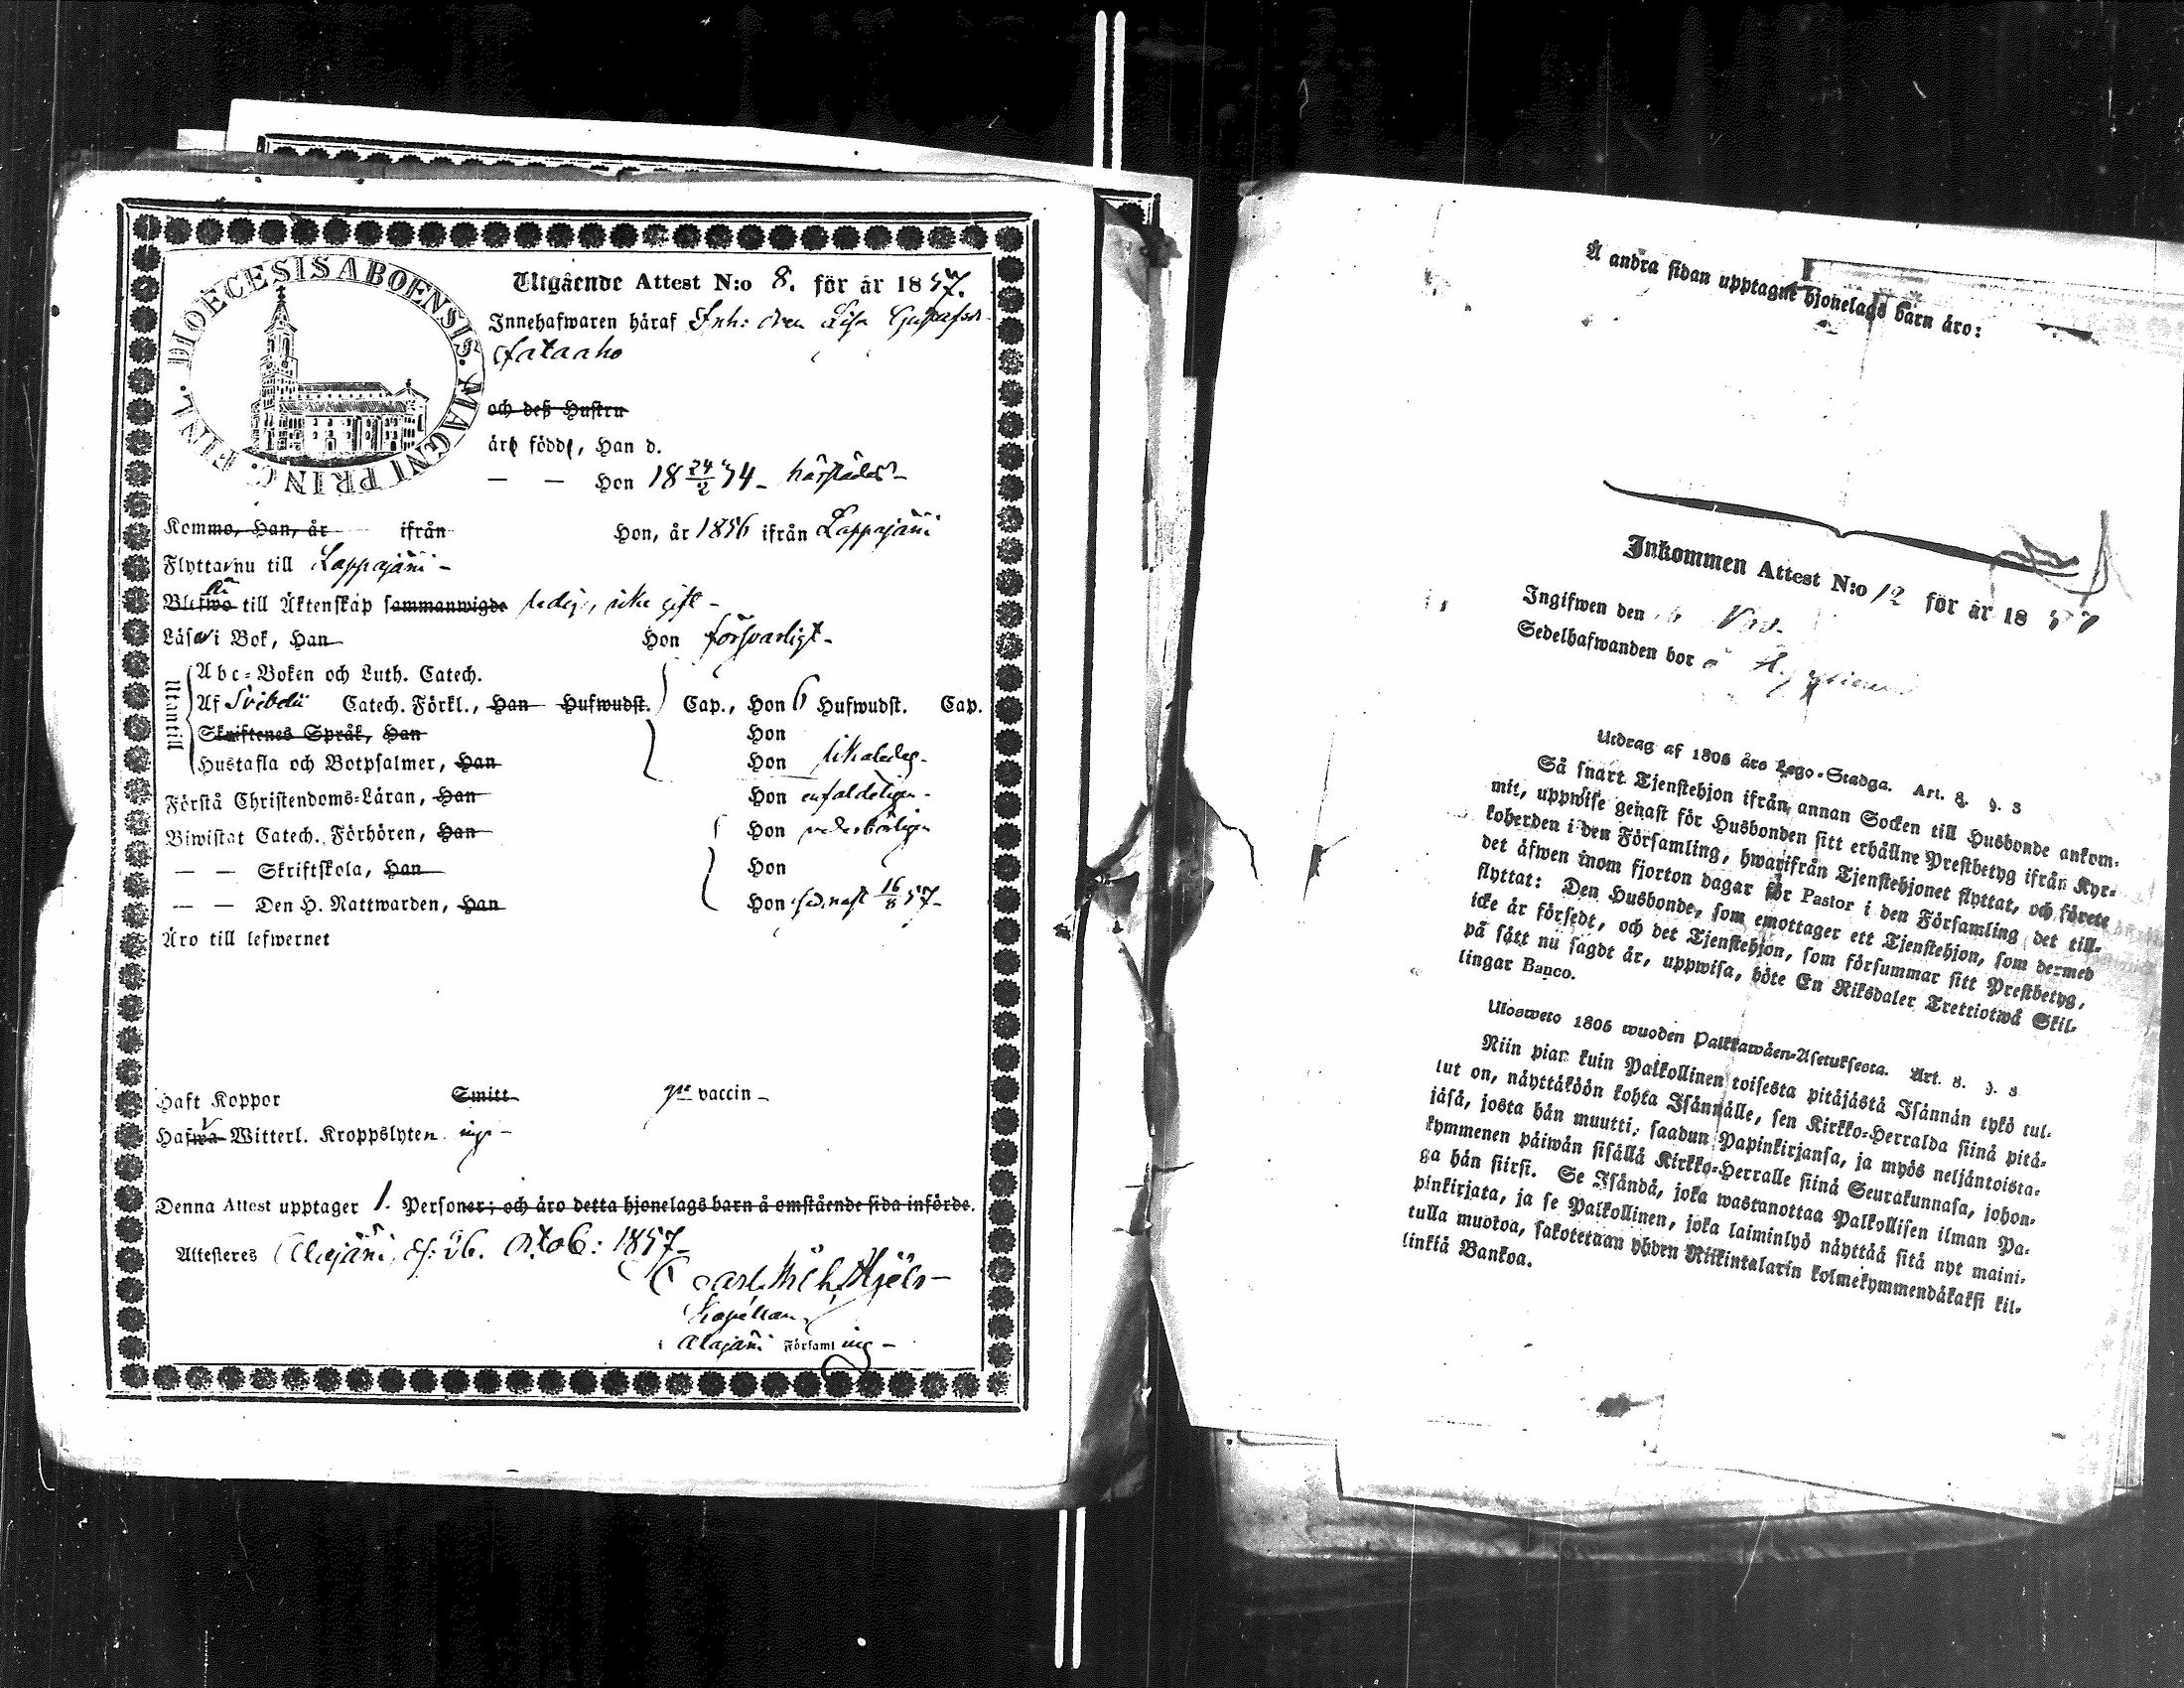 DIOECESIS ABOENSIS. MAGNI PRINC. FINL.
Utgående Attest N:o 8. för år 1857.
Innehafwaren häraf Inh: dren Lisa Gustafsdr
Sataaho
och deß Hustru
äro födde, Han d.
— — Hon 18 24/2 34 - härstädes -
Kommo, Han, år ifrån Hon, år 1856 ifrån Lappajärvi
Flytta nu till Lappajärvi -
Blefwo till Äktenskap sammanwigde ledig, icke gift -
Läsa i Bok, Han Hon försvarligt -
Utantill
Abc-Boken och Luth. Catech.
Af Svebelii Catech. Förkl., Han Hufwudst. Cap., Hon 6 Hufwudst. Cap.
Skriftenes Språk, Han Hon
Hustafla och Botpsalmer, Han Hon likaledes -
Förstå Christendoms-Läran, Han Hon enfaldeligen -
Biwistat Catech. Förhören, Han Hon vederbörligen
— — Skriftskola, Han Hon
— — Den H. Nattwarden, Han Hon senast 16/8 57 -
Äro till lefwernet
Haft Koppor Smitt gm vaccin -
Hafwa Witterl. Kroppslyten inga -
Denna Attest upptager 1. Personer; och äro detta hjonelags barn å omstående sida införde.
Attesteres Alajärvi, d. 26. Octob: 1857 -
Carl Wilh.
Kapellan
i Alajärvi Församling -
Å andra sidan upptagne hjonelags barn äro:
Inkommen Attest N:o 12 för år 1857
Ingifwen den Nov.
Sedelhafwanden bor å
Utdrag af 1805 års Lego-Stadga. Art. 8. §. 3
Så snart Tjenstehjon ifrån annan Socken till Husbonde ankom-
mit, uppwise genast för Husbonden sitt erhållne Prestbetyg ifrån Kyr-
koherden i den Församling, hwarifrån Tjenstehjonet flyttat, och förete
det äfwen inom fjorton dagar för Pastor i den Församling det till-
flyttat: Den Husbonde, som emottager ett Tjenstehjon, som dermed
icke är försedt, och det Tjenstehjon, som försummar sitt Prestbetyg,
på sätt nu sagdt är, uppwisa, böte En Riksdaler Trettiotwå Skil-
lingar Banco.
Ulosweto 1805 wuoden Palkkawäen-Asetuksesta. Art. 8. §. 3
Niin pian kuin Palkollinen toisesta pitäjästä Isännän tykö tul-
lut on, näyttäköön kohta Isännälle, sen Kirkko-Herralda siinä pitä-
jäsä, josta hän muutti, saadun Papinkirjansa, ja myös neljäntoista-
kymmenen päiwän sisällä Kirkko-Herralle siinä Seurakunnasa, johon-
ga hän siirsi. Se Isändä, joka wastanottaa Palkollisen ilman Pa-
pinkirjata, ja se Palkollinen, joka laiminlyö näyttää sitä nyt maini-
tulla muotoa, sakotetaan yhden Riikintalarin kolmekymmendäkaksi kil-
linkiä Bankoa.